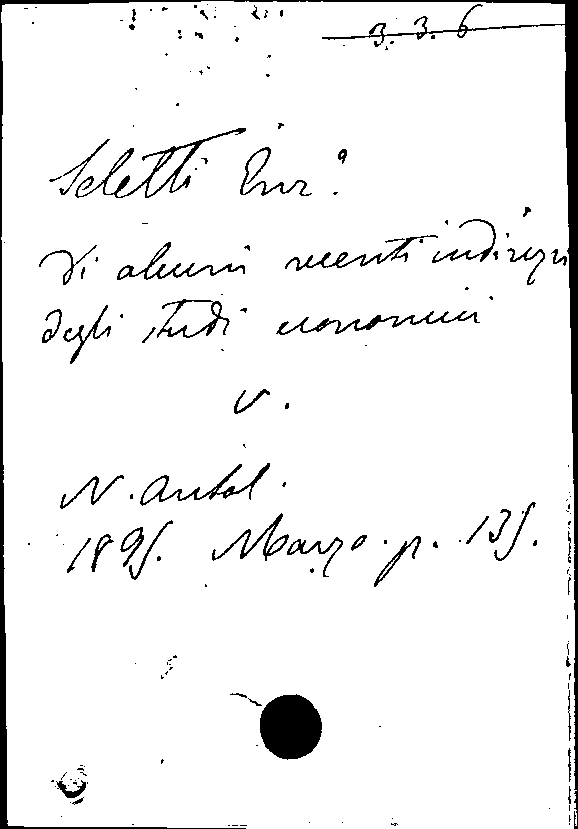 3. 3. 6
Seletti Enr.º
Di alcuni recenti indirizzi
degli studi economici
V.
N. Antol.
1895. Marzo. p. 135.